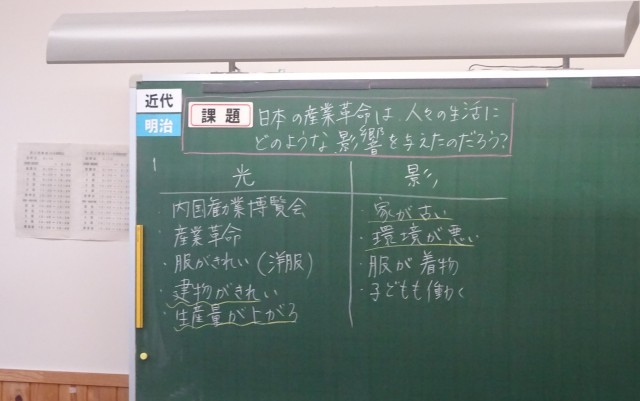 近代
明治
課題
日本の産業革命は、人々の生活に
どのような影響を与えたのだろう?
光
内国勧業博覧会
産業革命
・服がきれい(洋服)
・建物がきれい
・生産量が上がる
影
・家が古い
・環境が悪い
・服が着物
・子どもも働く